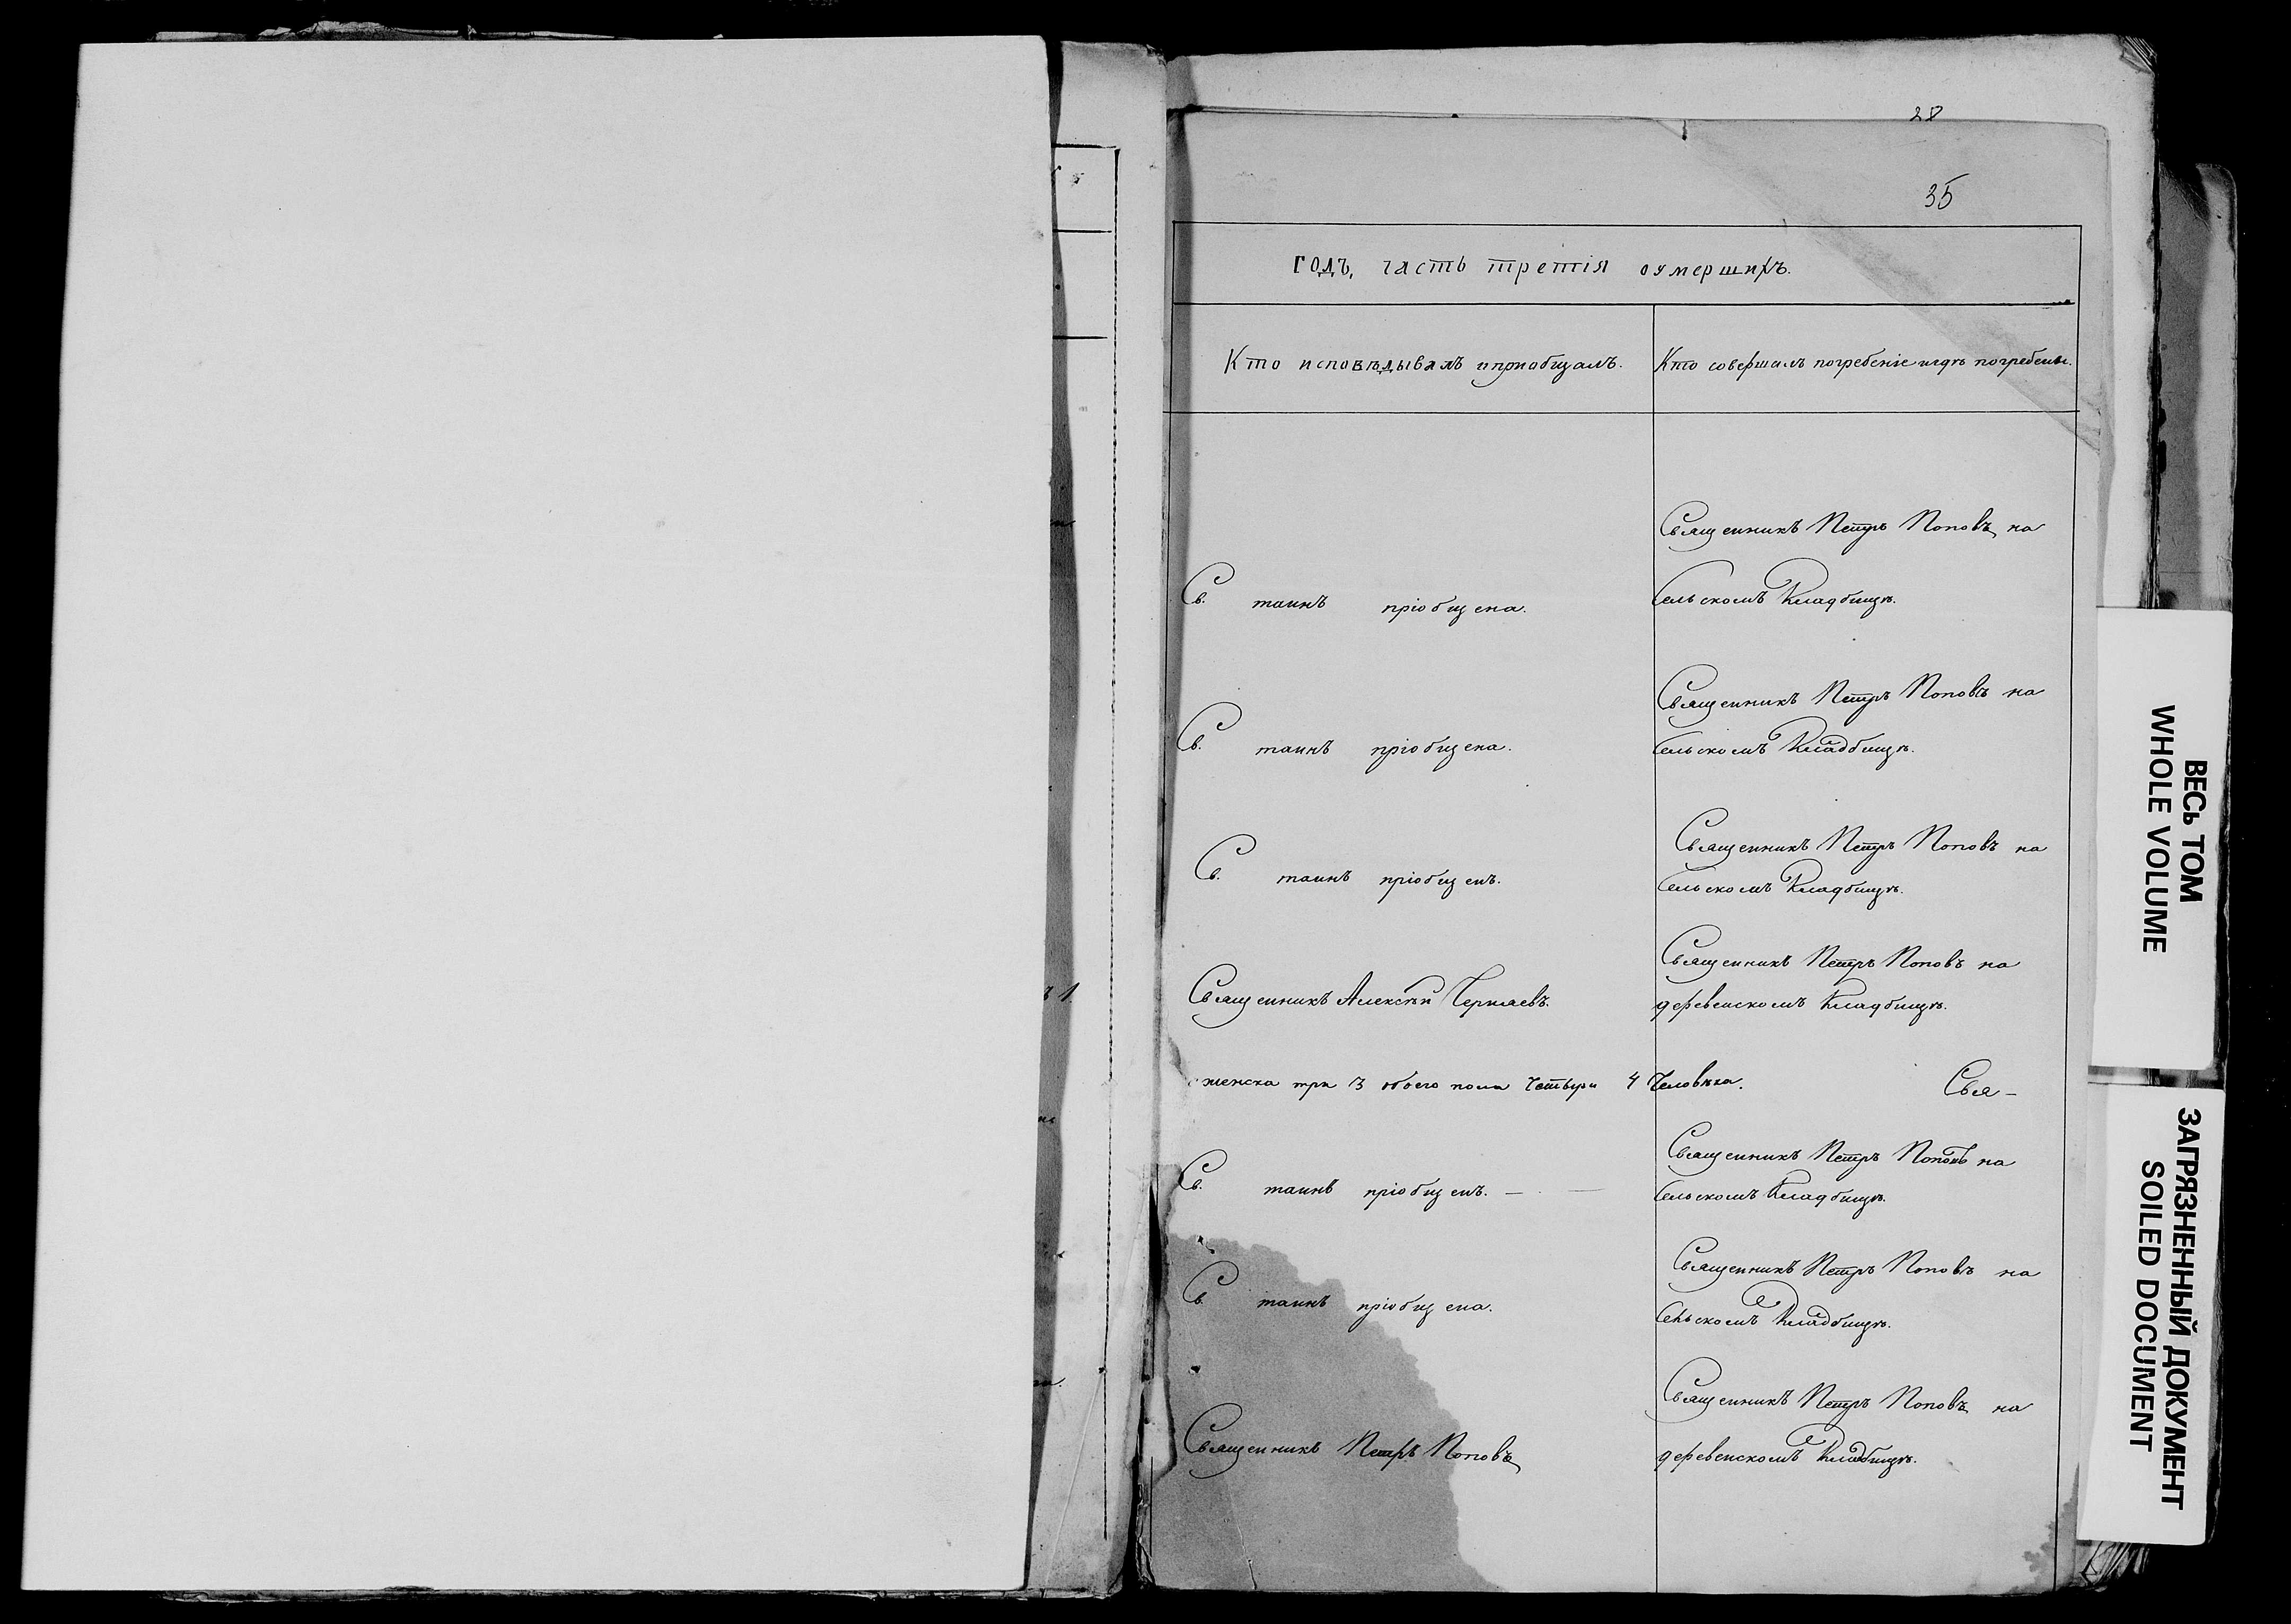 28
35
годъ, часть третія оумершихъ.
Кто исповѣдывалъ и приобщалъ.
Кто совершалъ погребеніе и гдѣ погребены.
Священникъ Петръ Поповъ на
Св. таинъ пріобщена.
Сельскомъ Кладбищѣ.
Священникъ Петръ Поповъ на
Св. таинъ пріобщена.
Сельскомъ Кладбищѣ.
Священникъ Петръ Поповъ на
Св. таинъ пріобщенъ.
Сельскомъ Кладбищѣ.
Священникъ Петръ Поповъ на
Священникъ Алексѣй Черняевъ.
деревенскомъ Кладбищѣ.
женска три 3 обоего пола Четыри 4 Человѣка. Свя-
Священникъ Петръ Поповъ на
Св. таинъ пріобщенъ. — —
Сельскомъ Кладбищѣ.
Священникъ Петръ Поповъ на
Св. таинъ пріобщена.
Сельскомъ Кладбищѣ.
Священникъ Петръ Поповъ на
Священникъ Петръ Поповъ
деревенскомъ Кладбищѣ.
ВЕСЬ ТОМ
WHOLE VOLUME
ЗАГРЯЗНЕННЫЙ ДОКУМЕНТ
SOILED DOCUMENT